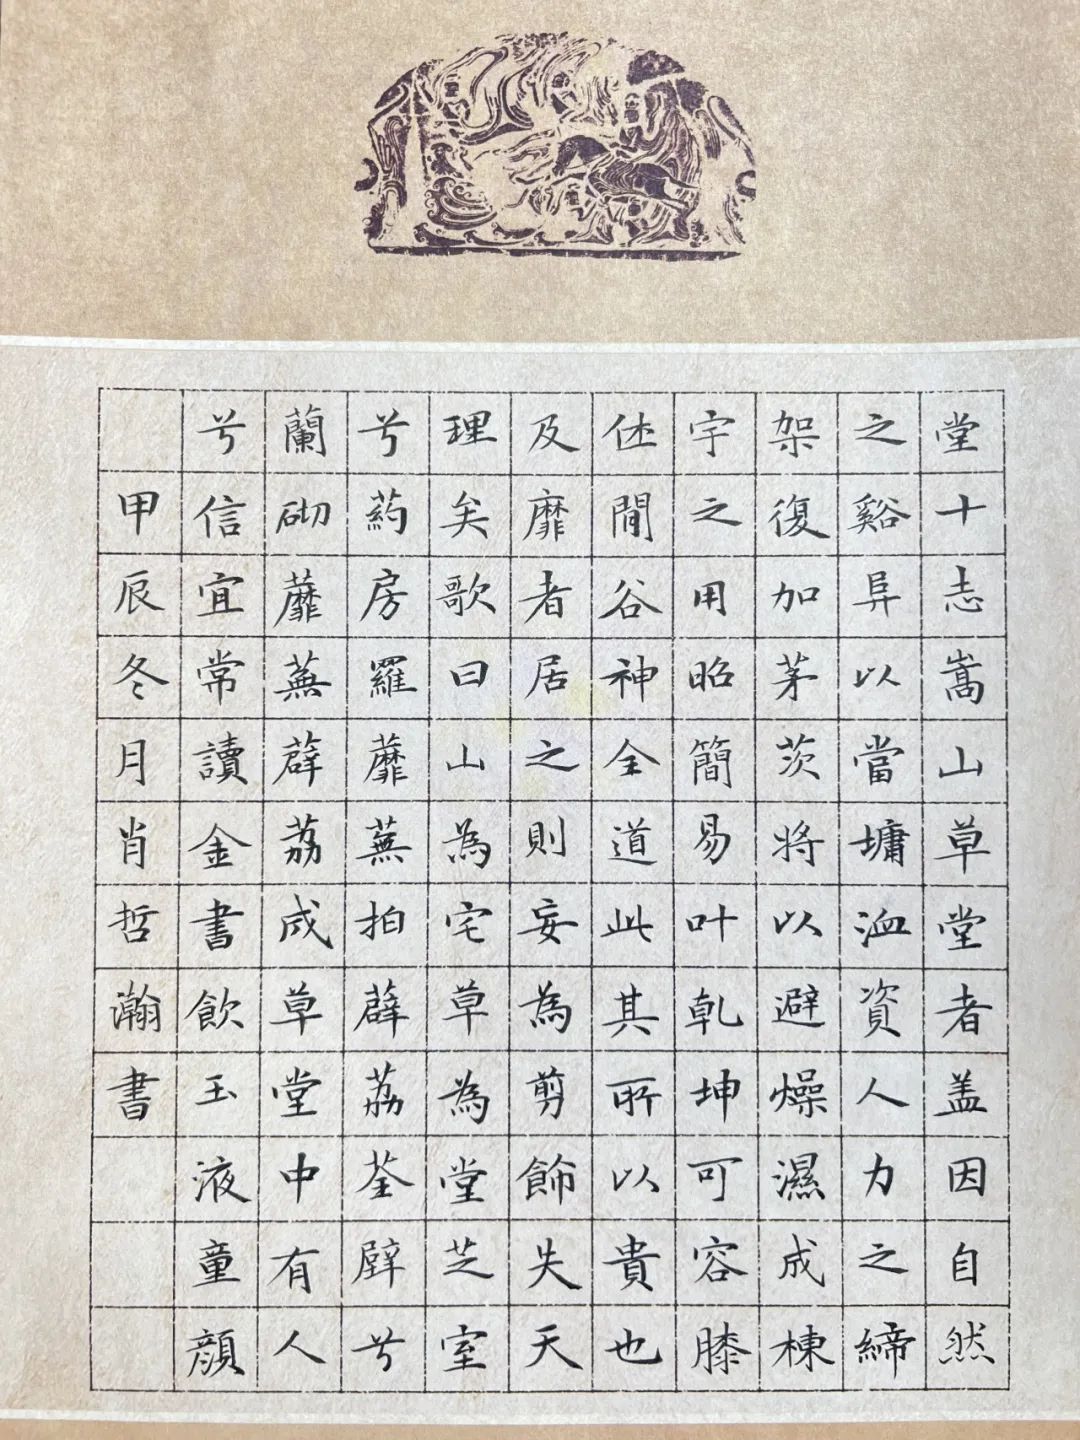 堂十志嵩山草堂者盖因自然
之谿阜以當墉洫資人力之締
架復加茅茨將以避燥濕成棟
宇之用昭簡易叶乾坤可容膝
休閒谷神全道此其所以貴也
及靡者居之則妄為剪飾失天
理矣歌曰山為宅草為堂芝室
兮葯房羅蘼蕪拍薜荔荃壁兮
蘭砌蘼蕪薜荔成草堂中有人
兮信宜常讀金書飲玉液童顔
甲辰冬月肖哲瀚書